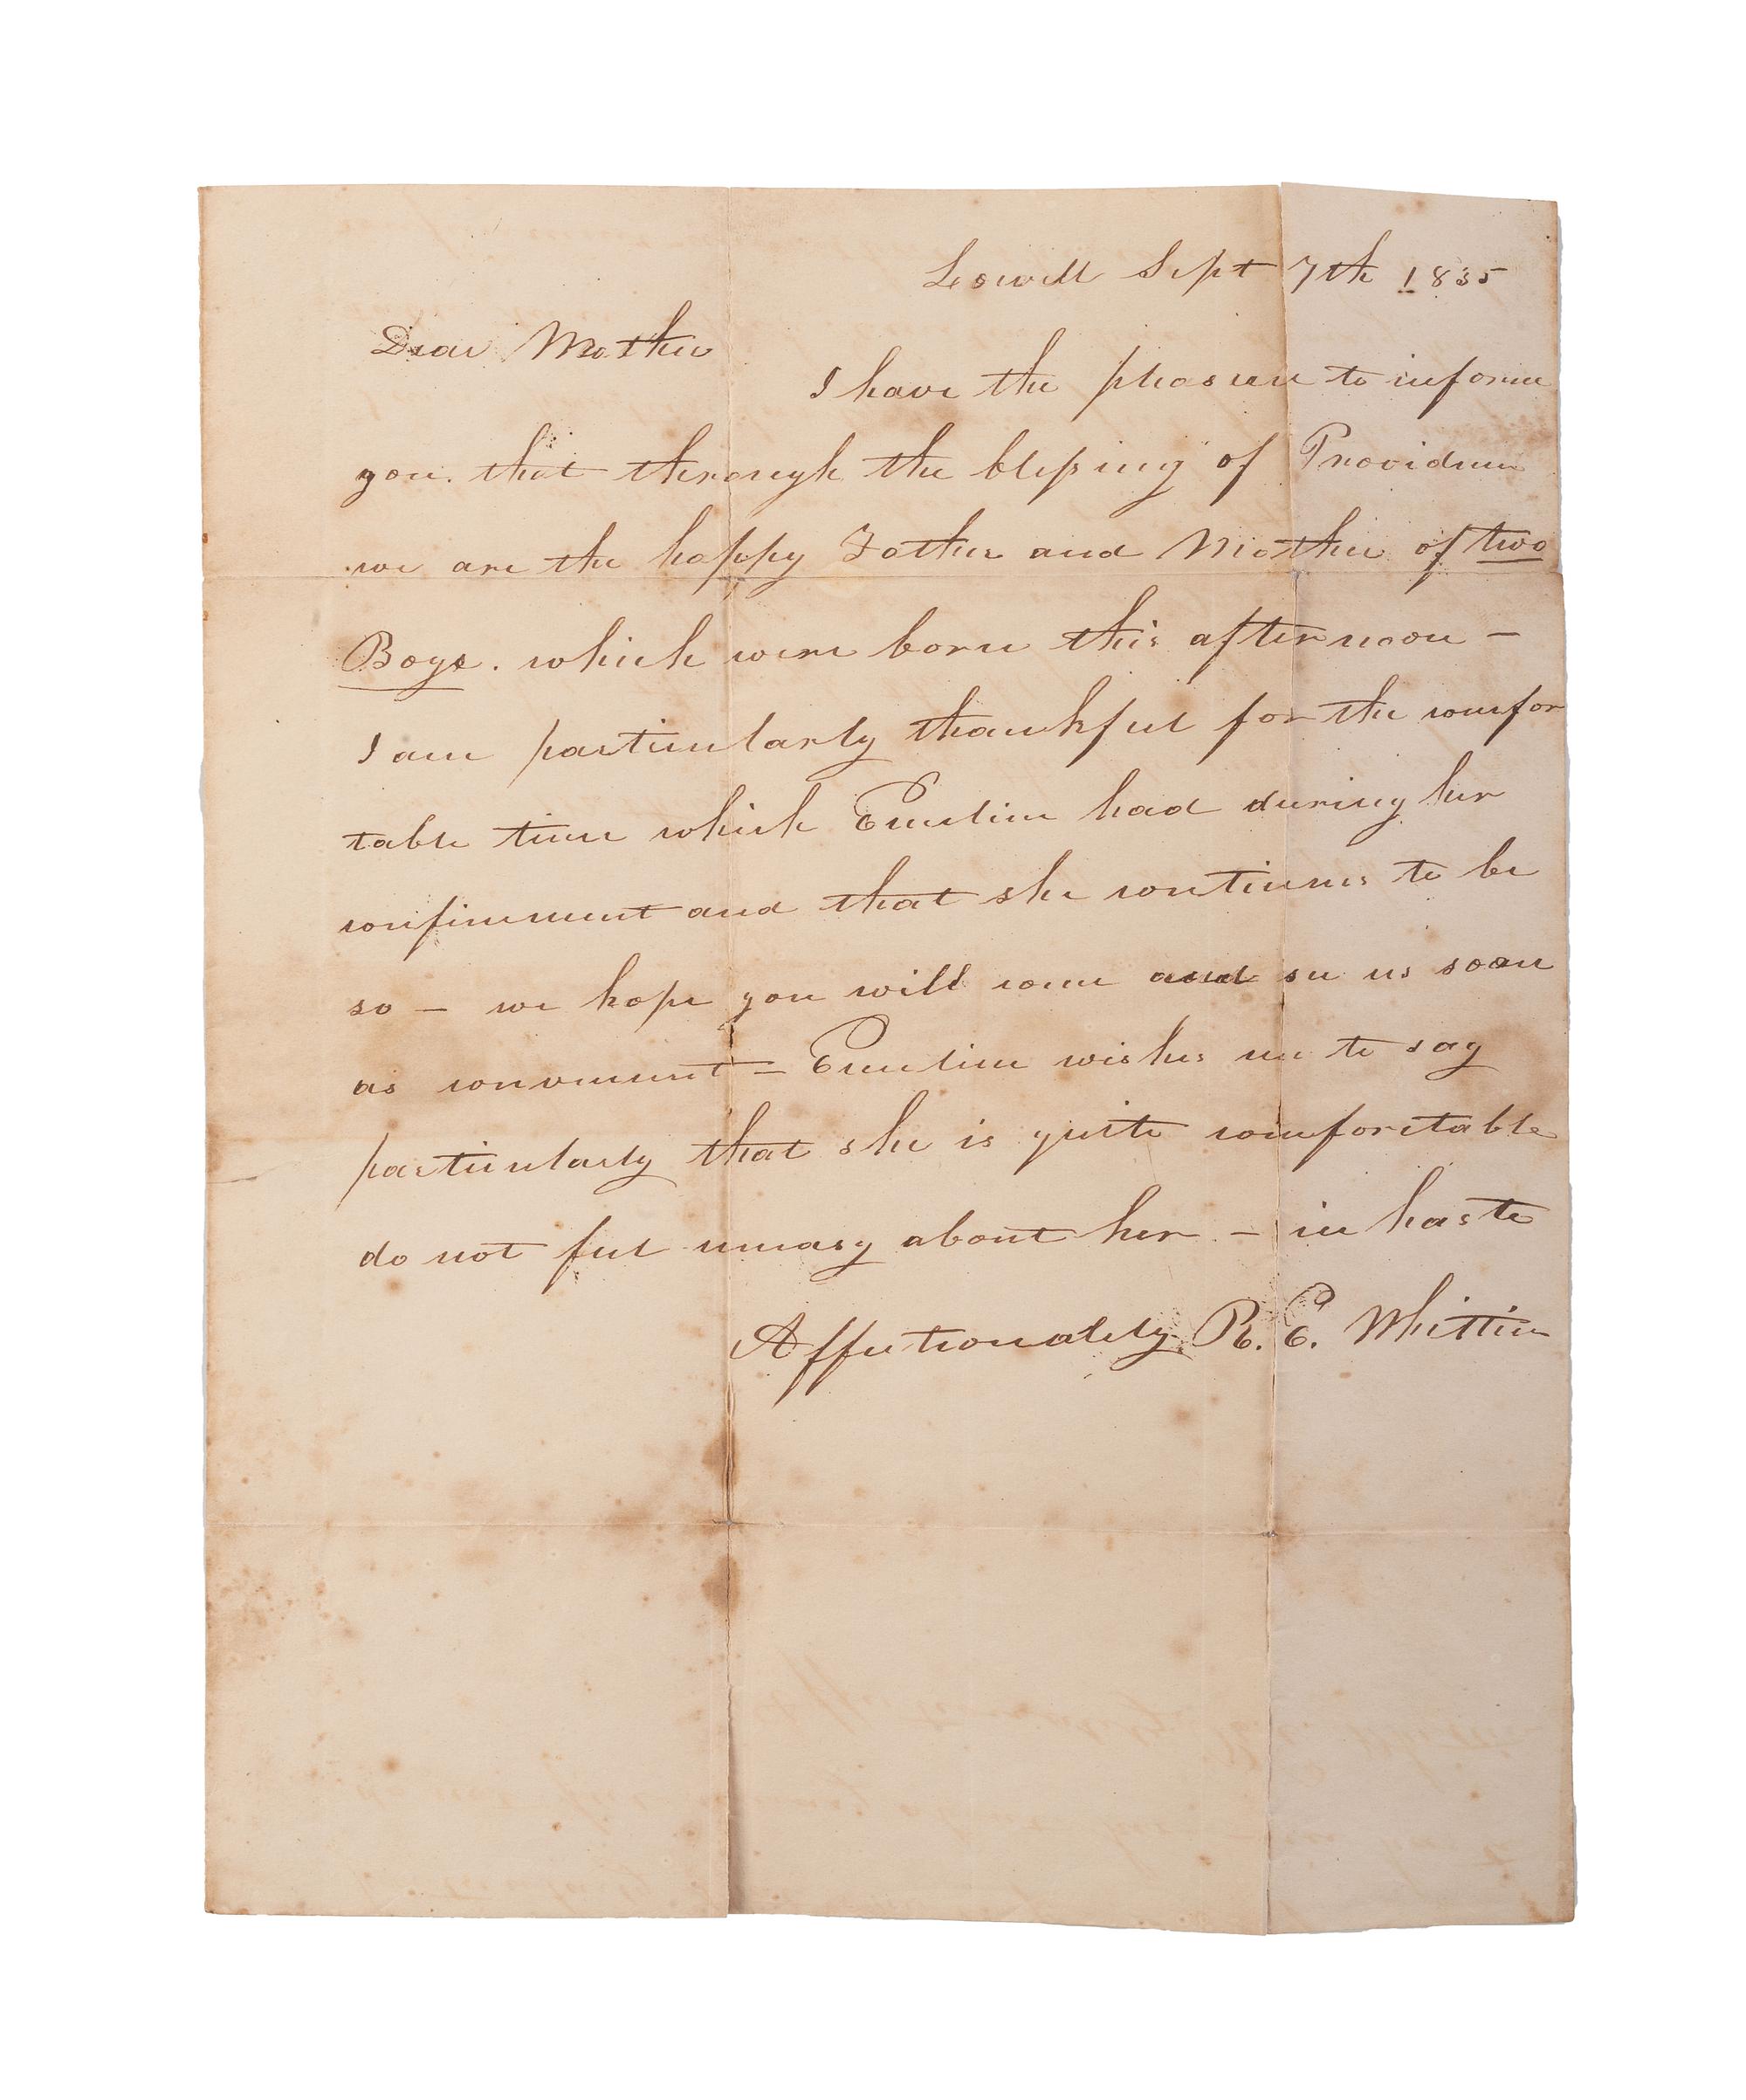 Lowell Sept 7th 1835
Dear Mother
I have the pleasure to inform
you that through the blessing of Providence
we are the happy Father and Mother of two
Boys. which were born this afternoon —
I am particularly thankful for the comfor
table time which Emeline had during her
confinement and that she continues to be
so — we hope you will come and see us soon
as convenient = Emeline wishes me to say
particularly that she is quite comfortable
do not feel uneasy about her — in haste
Affectionately R. E. Whittier